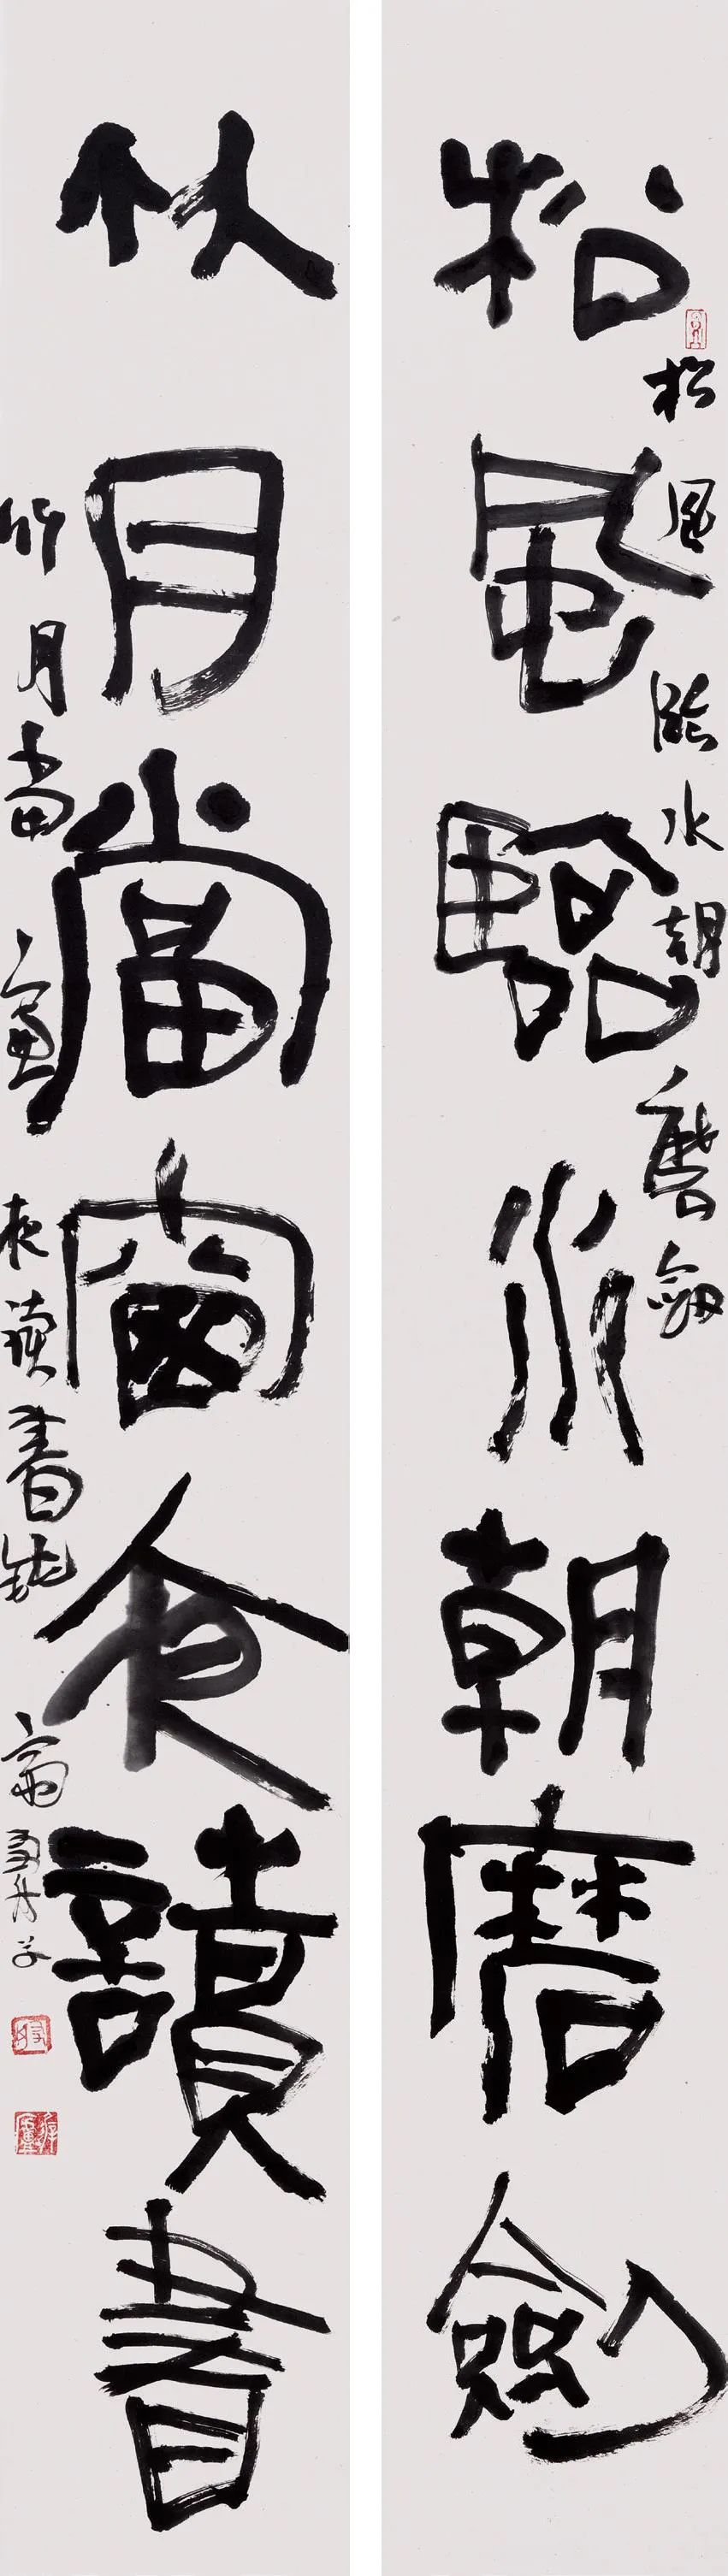 松風臨水朝磨劍
松風臨水朝磨劍
竹月當窗夜讀書
竹月當窗夜讀書